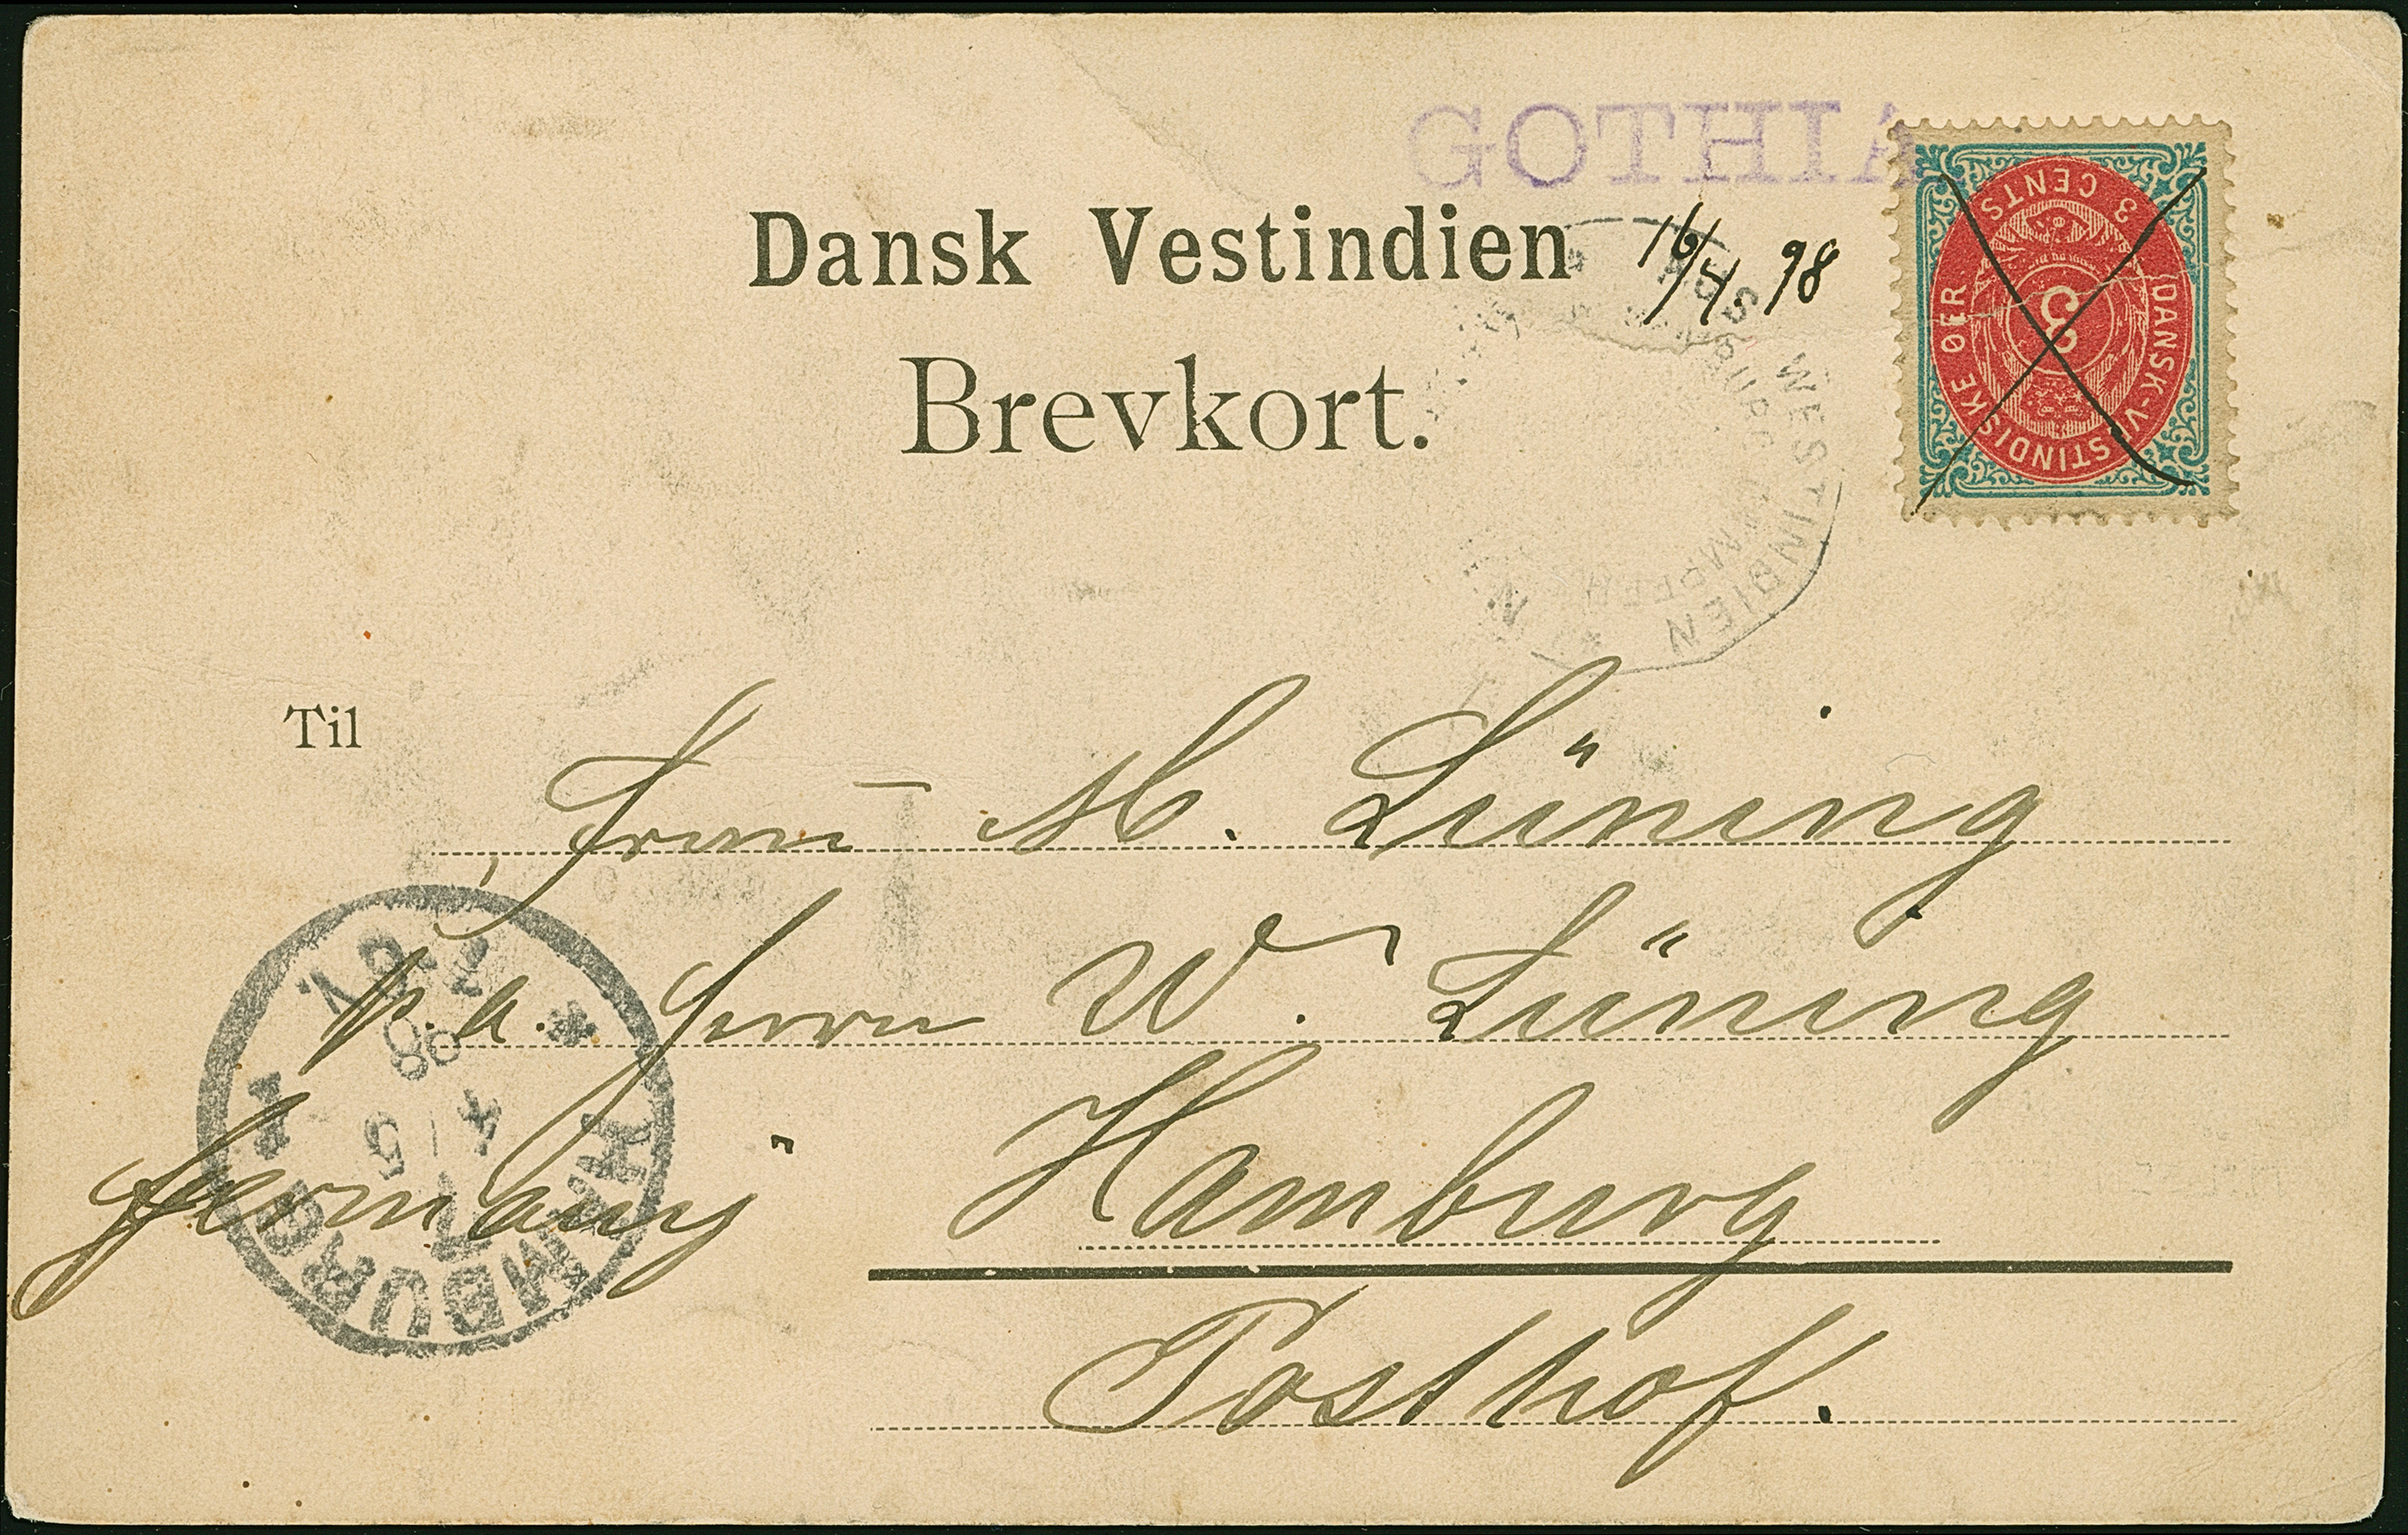 GOTHIA
3 CENTS
DANSK-VESTINDISKE ØER
3
Dansk Vestindien
16/4. 98
Brevkort.
WESTINDIEN
Til
Frau M. Lüning
p. a. Herrn W. Lüning
Germany
Hamburg
Posthof.
HAMBURG 1
4 5
98
7-8 V.